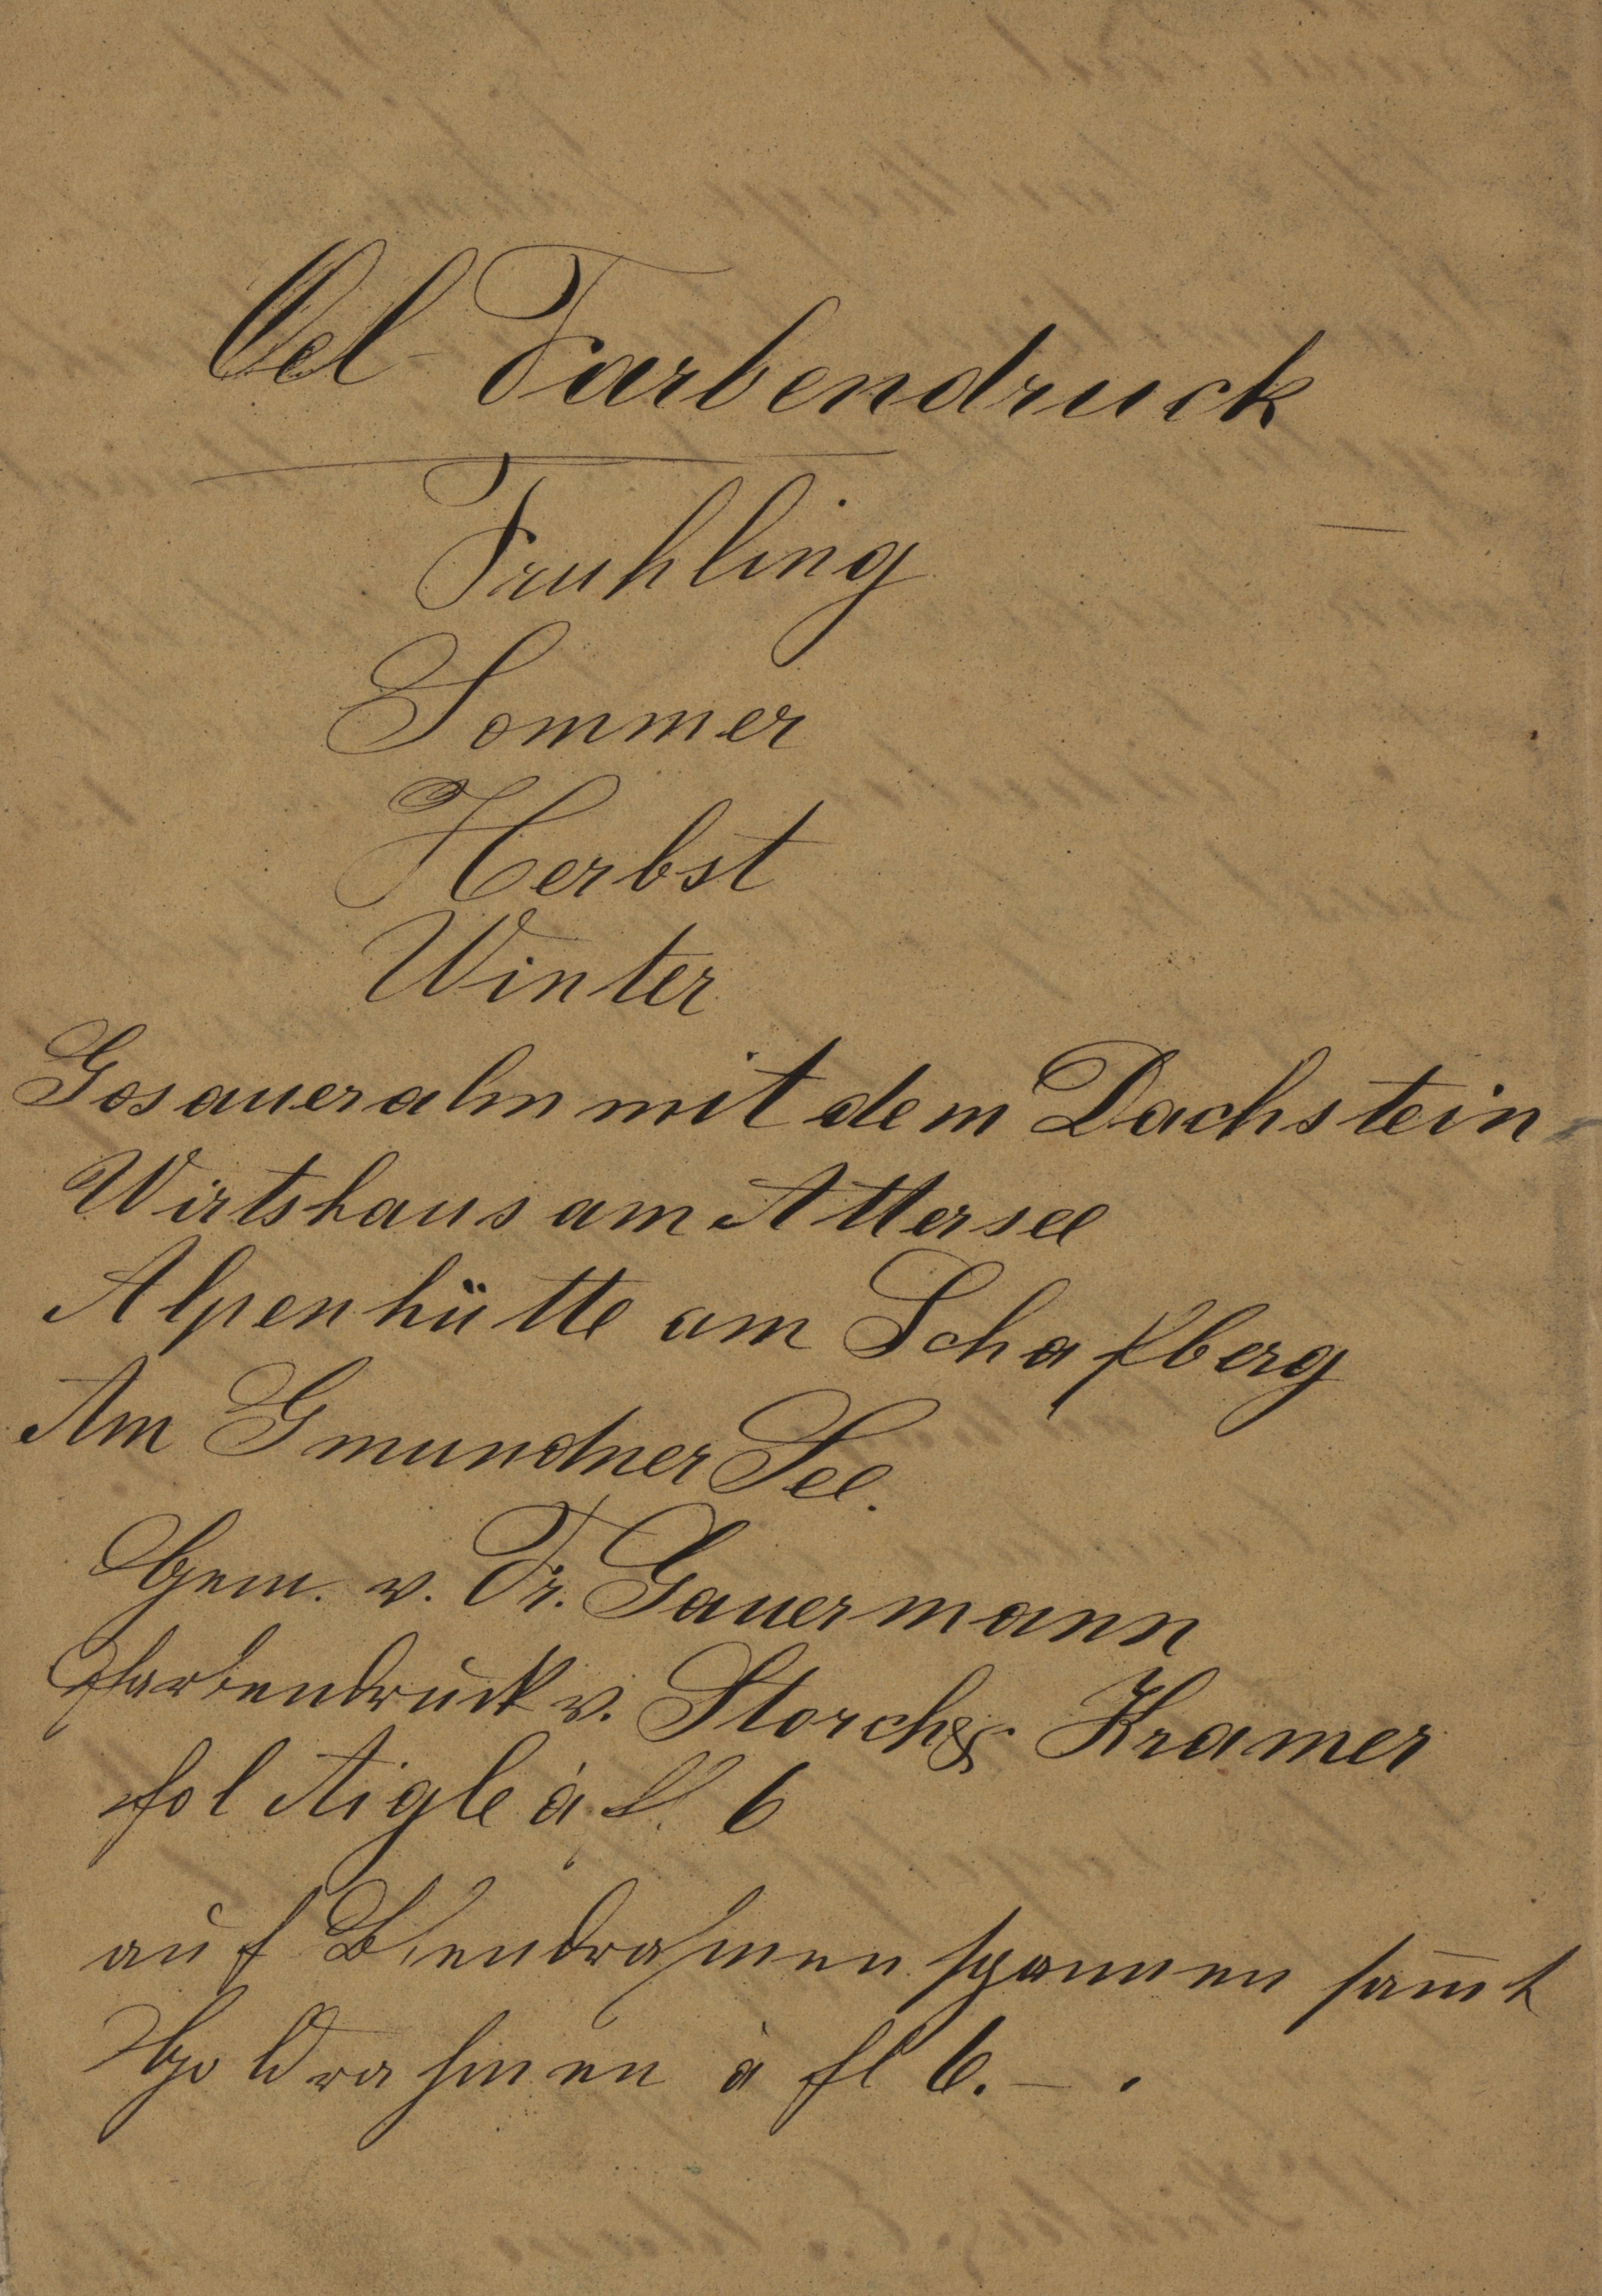 Oel-Farbendruck
Fruhling
Sommer
Herbst
Winter
Gosaueralm mit dem Dachstein
Wirtshaus am Attersee
Alpenhütte am Schafberg
Am Gmundner See.
Gem. v. Fr. Gauermann
Farbendruck v. Storch & Kramer
fol Aigle à fl. 6
auf Blendrahmen spannen sam̄t
Goldrahmen à fl 6.—.